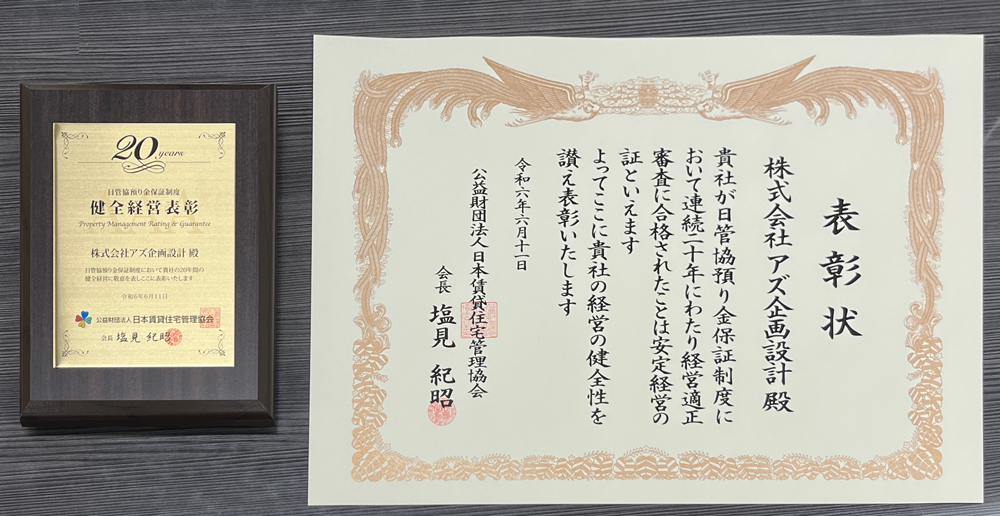 20 years
日管協預り金保証制度
健全経営表彰
Property Management Rating & Guarantee
株式会社アズ企画設計 殿
日管協預り金保証制度において貴社の20年間の
健全経営に敬意を表しここに表彰いたします
令和6年6月11日
公益財団法人 日本賃貸住宅管理協会
会長 塩見 紀昭
表彰状
株式会社アズ企画設計 殿
貴社が日管協預り金保証制度に
おいて連続二十年にわたり経営適正
審査に合格されたことは安定経営の
証といえます
よってここに貴社の経営の健全性を
讃え表彰いたします
令和六年六月十一日
公益財団法人日本賃貸住宅管理協会
会長 塩見 紀昭